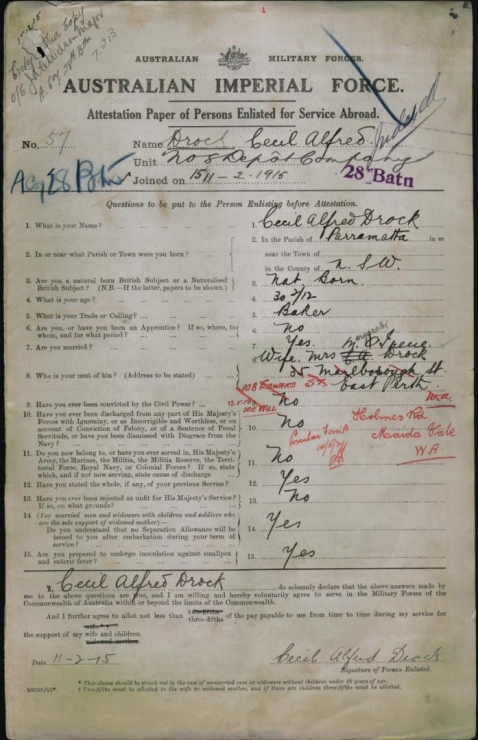 AUSTRALIAN MILITARY FORCES.
AUSTRALIAN IMPERIAL FORCE.
Attestation Paper of Persons Enlisted for Service Abroad.
No. 57 Name Drock Cecil Alfred
Unit No 8 Depôt Company
Joined on 11-2-1915
28th Batn
Questions to be put to the Person Enlisting before Attestation.
1. What is your Name? ... 1. Cecil Alfred Drock
2. In or near what Parish or Town were you born? ... 2. In the Parish of Parramatta in or
near the Town of
in the County of N.S.W.
3. Are you a natural born British Subject or a Naturalised
British Subject? (N.B.—If the latter, papers to be shown.) 3. Nat Born.
4. What is your age? ... 4. 30 2/12
5. What is your Trade or Calling? ... 5. Baker
6. Are you, or have you been an Apprentice? If so, where, to
whom, and for what period? ... 6. No
7. Are you married? ... 7. Yes.
8. Who is your next of kin? (Address to be stated) 8. Wife. Mrs Drock
35 Marlborough St
East Perth
108 Edward St
W.A.
9. Have you ever been convicted by the Civil Power? ... 9. No
10. Have you ever been discharged from any part of His Majesty's
Forces with Ignominy, or as Incorrigible and Worthless, or on
account of Conviction of Felony, or of a Sentence of Penal
Servitude, or have you been Dismissed with Disgrace from the
Navy? ... 10. No
Holmes Rd
Maida Vale
W.A.
11. Do you now belong to, or have you ever served in, His Majesty's
Army, the Marines, the Militia, the Militia Reserve, the Terri-
torial Force, Royal Navy, or Colonial Forces? If so, state
which, and if not now serving, state cause of discharge 11. No
12. Have you stated the whole, if any, of your previous Service? 12. Yes
13. Have you ever been rejected as unfit for His Majesty's Service?
If so, on what grounds? ... 13. No
14. (For married men and widowers with children and soldiers who
are the sole support of widowed mother)—
Do you understand that no Separation Allowance will be
issued to you after embarkation during your term of
service? ... 14. Yes
15. Are you prepared to undergo inoculation against smallpox
and enteric fever? ... 15. Yes
I, Cecil Alfred Drock do solemnly declare that the above answers made by
me to the above questions are true, and I am willing and hereby voluntarily agree to serve in the Military Forces of the
Commonwealth of Australia within or beyond the limits of the Commonwealth.
And I further agree to allot not less than two-fifths three-fifths of the pay payable to me from time to time during my service for
the support of my wife* wife and children. widowed mother.
Date 11-2-15 Cecil Alfred Drock
Signature of Person Enlisted.
* This clause should be struck out in the case of unmarried men or widowers without children under 18 years of age.
† Two-fifths must be allotted to the wife or widowed mother, and if there are children three-fifths must be allotted.